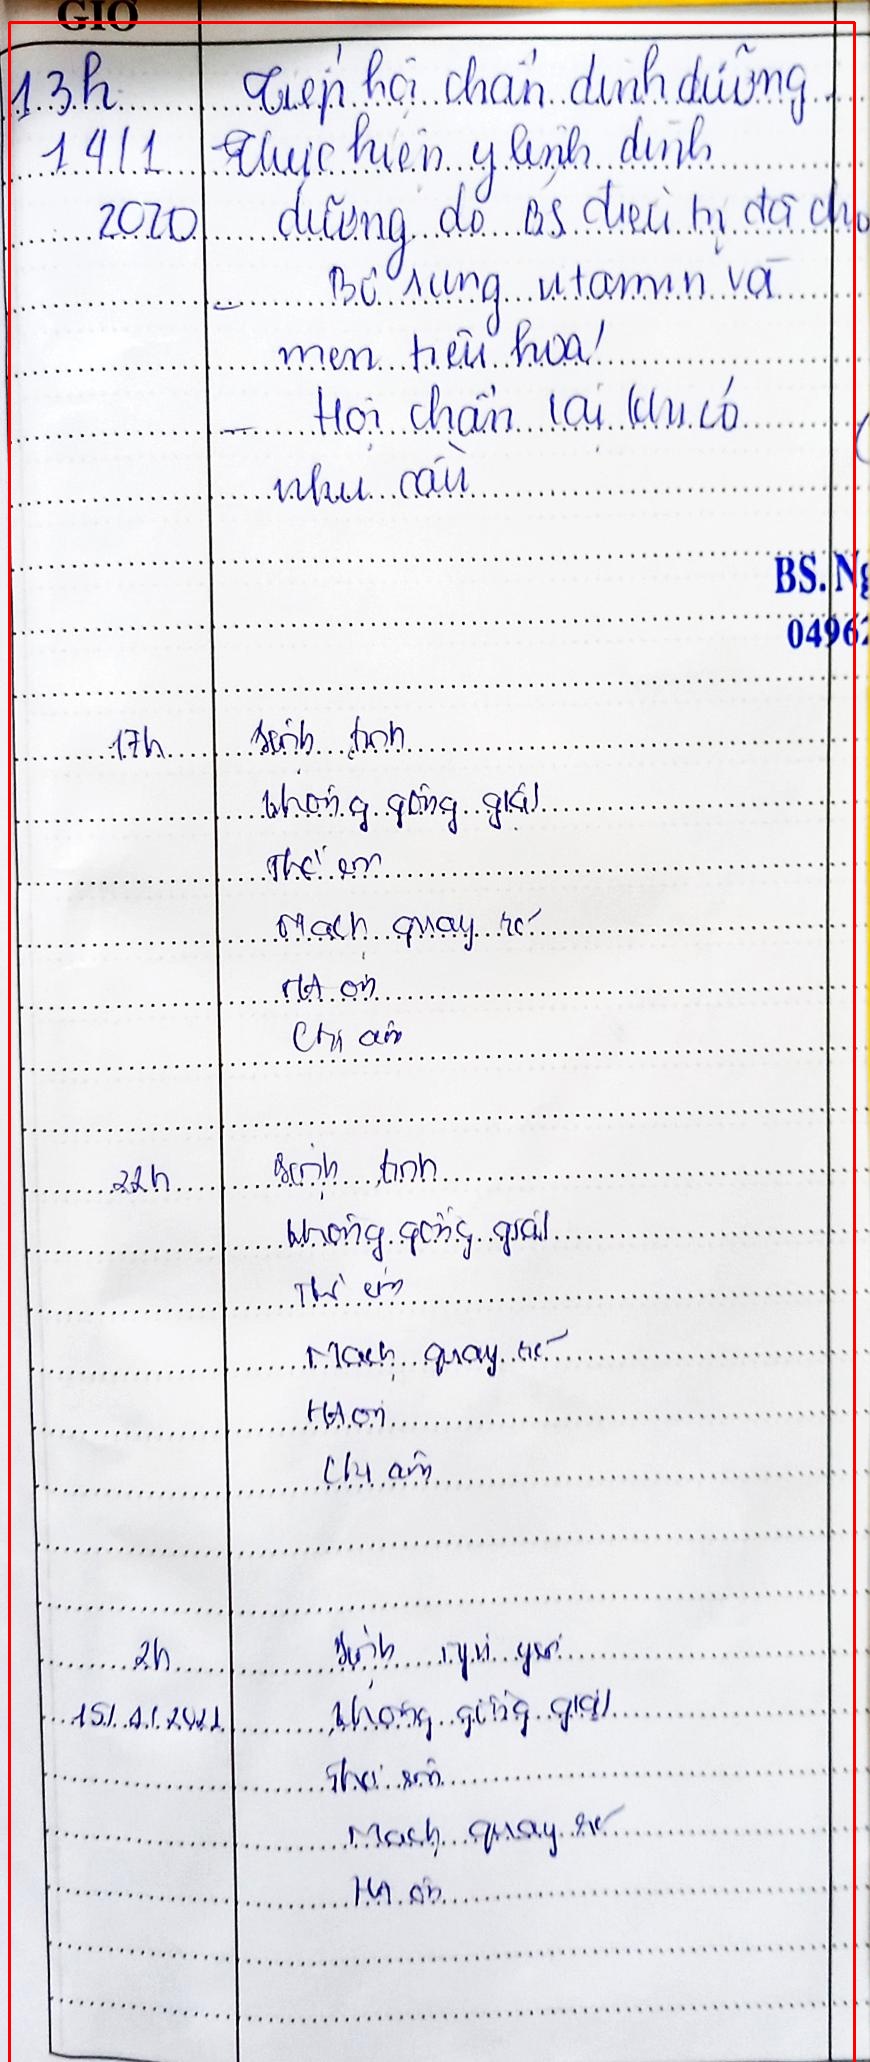 GIỜ
13h Tiếp hội chẩn dinh dưỡng
14/1 Thực hiện y lệnh dinh
2020 dưỡng do BS điều trị đã cho
- Bổ sung vitamin và
men tiêu hóa!
- Hội chẩn lại khi có
nhu cầu
BS. Ng
04962
17h Bệnh tỉnh
Không gồng giật
Thở êm
Mạch quay rõ
HA ổn
Chi ấm
22h Bệnh tỉnh
Không gồng giật
Thở êm
Mạch quay rõ
HA ổn
Chi ấm
2h Bệnh
15/1/2021 Không gồng giật
Thở êm
Mạch quay rõ
HA ổn